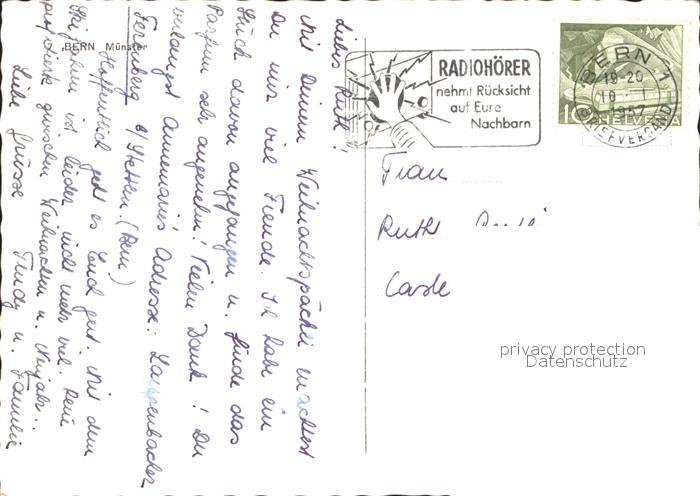 BERN Münster
Liebe Ruth!
Mit Deinem Weihnachtspäckli machtest
Du mir viel Freude. Ich habe ein
Stück davon angefangen u. finde das
Parfum sehr angenehm! Vielen Dank! Du
verlangst Annemaries Adresse: Lauppenbacher
Ferenberg b/Stettlen (Bern)
Hoffentlich geht es Euch gut. Mit dem
Skifahren ist leider nicht mehr viel. René
profitierte zwischen Weihnachten u. Neujahr.
Liebe Grüsse Trudy u. Familie
RADIOHÖRER
nehmt Rücksicht
auf Eure
Nachbarn
BERN 1
19-20
10 I
1957
BRIEFVERSAND
10 HELVETIA
Frau
Ruth
Casle
privacy protection
Datenschutz